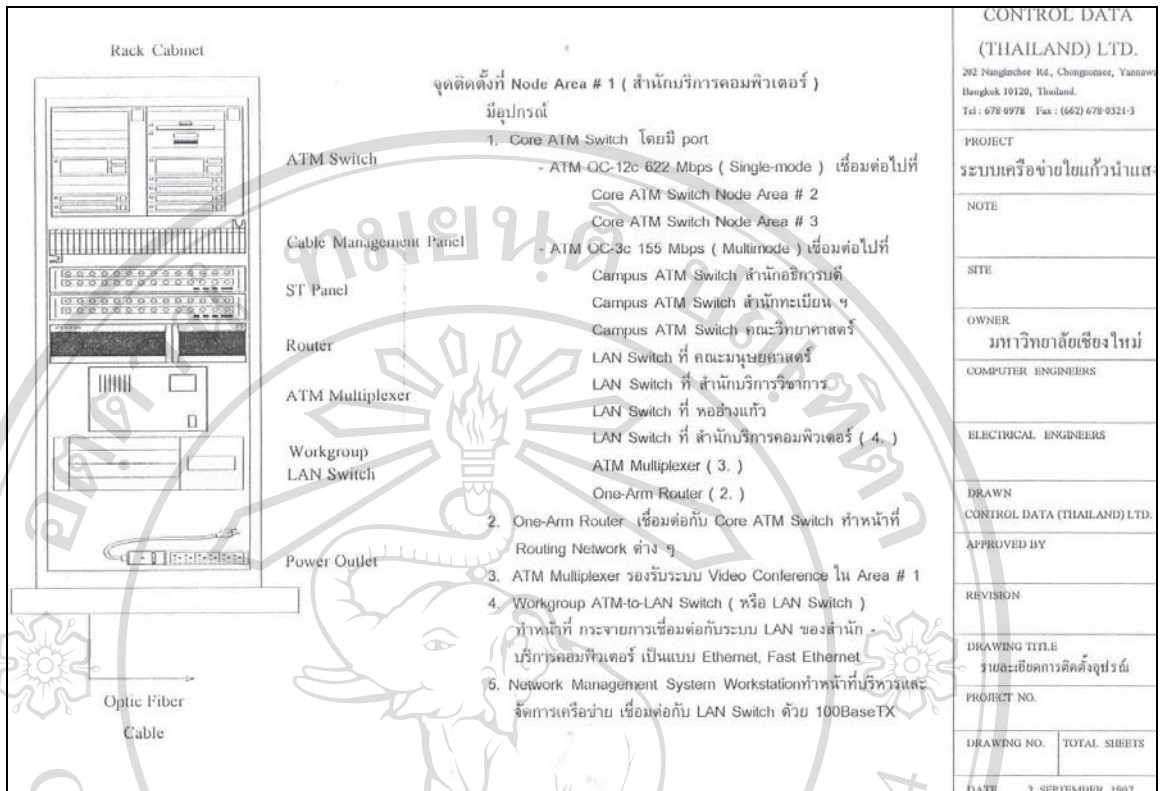 Rack Cabinet
ATM Switch
Cable Management Panel
ST Panel
Router
ATM Multiplexer
Workgroup
LAN Switch
Power Outlet
Optic Fiber
Cable
จุดติดตั้งที่ Node Area # 1 ( สำนักบริการคอมพิวเตอร์ )
มีอุปกรณ์
1. Core ATM Switch โดยมี port
- ATM OC-12c 622 Mbps ( Single-mode ) เชื่อมต่อไปที่
Core ATM Switch Node Area # 2
Core ATM Switch Node Area # 3
- ATM OC-3c 155 Mbps ( Multimode ) เชื่อมต่อไปที่
Campus ATM Switch สำนักอธิการบดี
Campus ATM Switch สำนักทะเบียน ฯ
Campus ATM Switch คณะวิทยาศาสตร์
LAN Switch ที่ คณะมนุษยศาสตร์
LAN Switch ที่ สำนักบริการวิชาการ
LAN Switch ที่ หออ่างแก้ว
LAN Switch ที่ สำนักบริการคอมพิวเตอร์ ( 4. )
ATM Multiplexer ( 3. )
One-Arm Router ( 2. )
2. One-Arm Router เชื่อมต่อกับ Core ATM Switch ทำหน้าที่
Routing Network ต่าง ๆ
3. ATM Multiplexer รองรับระบบ Video Conference ใน Area # 1
4. Workgroup ATM-to-LAN Switch ( หรือ LAN Switch )
ทำหน้าที่ กระจายการเชื่อมต่อกับระบบ LAN ของสำนัก -
บริการคอมพิวเตอร์ เป็นแบบ Ethernet, Fast Ethernet
5. Network Management System Workstationทำหน้าที่บริหารและ
จัดการเครือข่าย เชื่อมต่อกับ LAN Switch ด้วย 100BaseTX
CONTROL DATA
(THAILAND) LTD.
202 Nanglinchee Rd., Chongnonsee, Yannawa
Bangkok 10120, Thailand.
Tel : 678-0978 Fax : (662) 678-0321-3
PROJECT
ระบบเครือข่ายใยแก้วนำแสง
NOTE
SITE
OWNER
มหาวิทยาลัยเชียงใหม่
COMPUTER ENGINEERS
ELECTRICAL ENGINEERS
DRAWN
CONTROL DATA (THAILAND) LTD.
APPROVED BY
REVISION
DRAWING TITLE
รายละเอียดการติดตั้งอุปรณ์
PROJECT NO.
DRAWING NO. TOTAL SHEETS
DATE 2 SEPTEMBER 1997